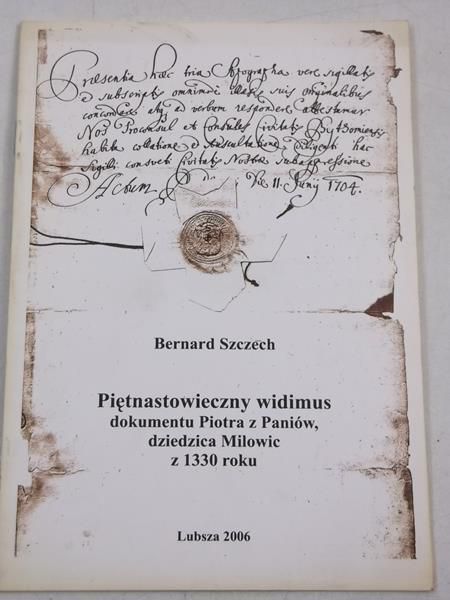 Præsentia hæc tria Apographa vere sigillata
et subscripta omnimode suis originalibus
concordare atq ad verbum respondere attestamur
Nos Proconsul et Consules Civitatis Bythomiensis
habita collatione et Auscultatione diligenti hac
Sigilli consveti Civitatis Nostræ subappressione
Actum Die 11. Junij 1704.
Bernard Szczech
Piętnastowieczny widimus
dokumentu Piotra z Paniów,
dziedzica Milowic
z 1330 roku
Lubsza 2006